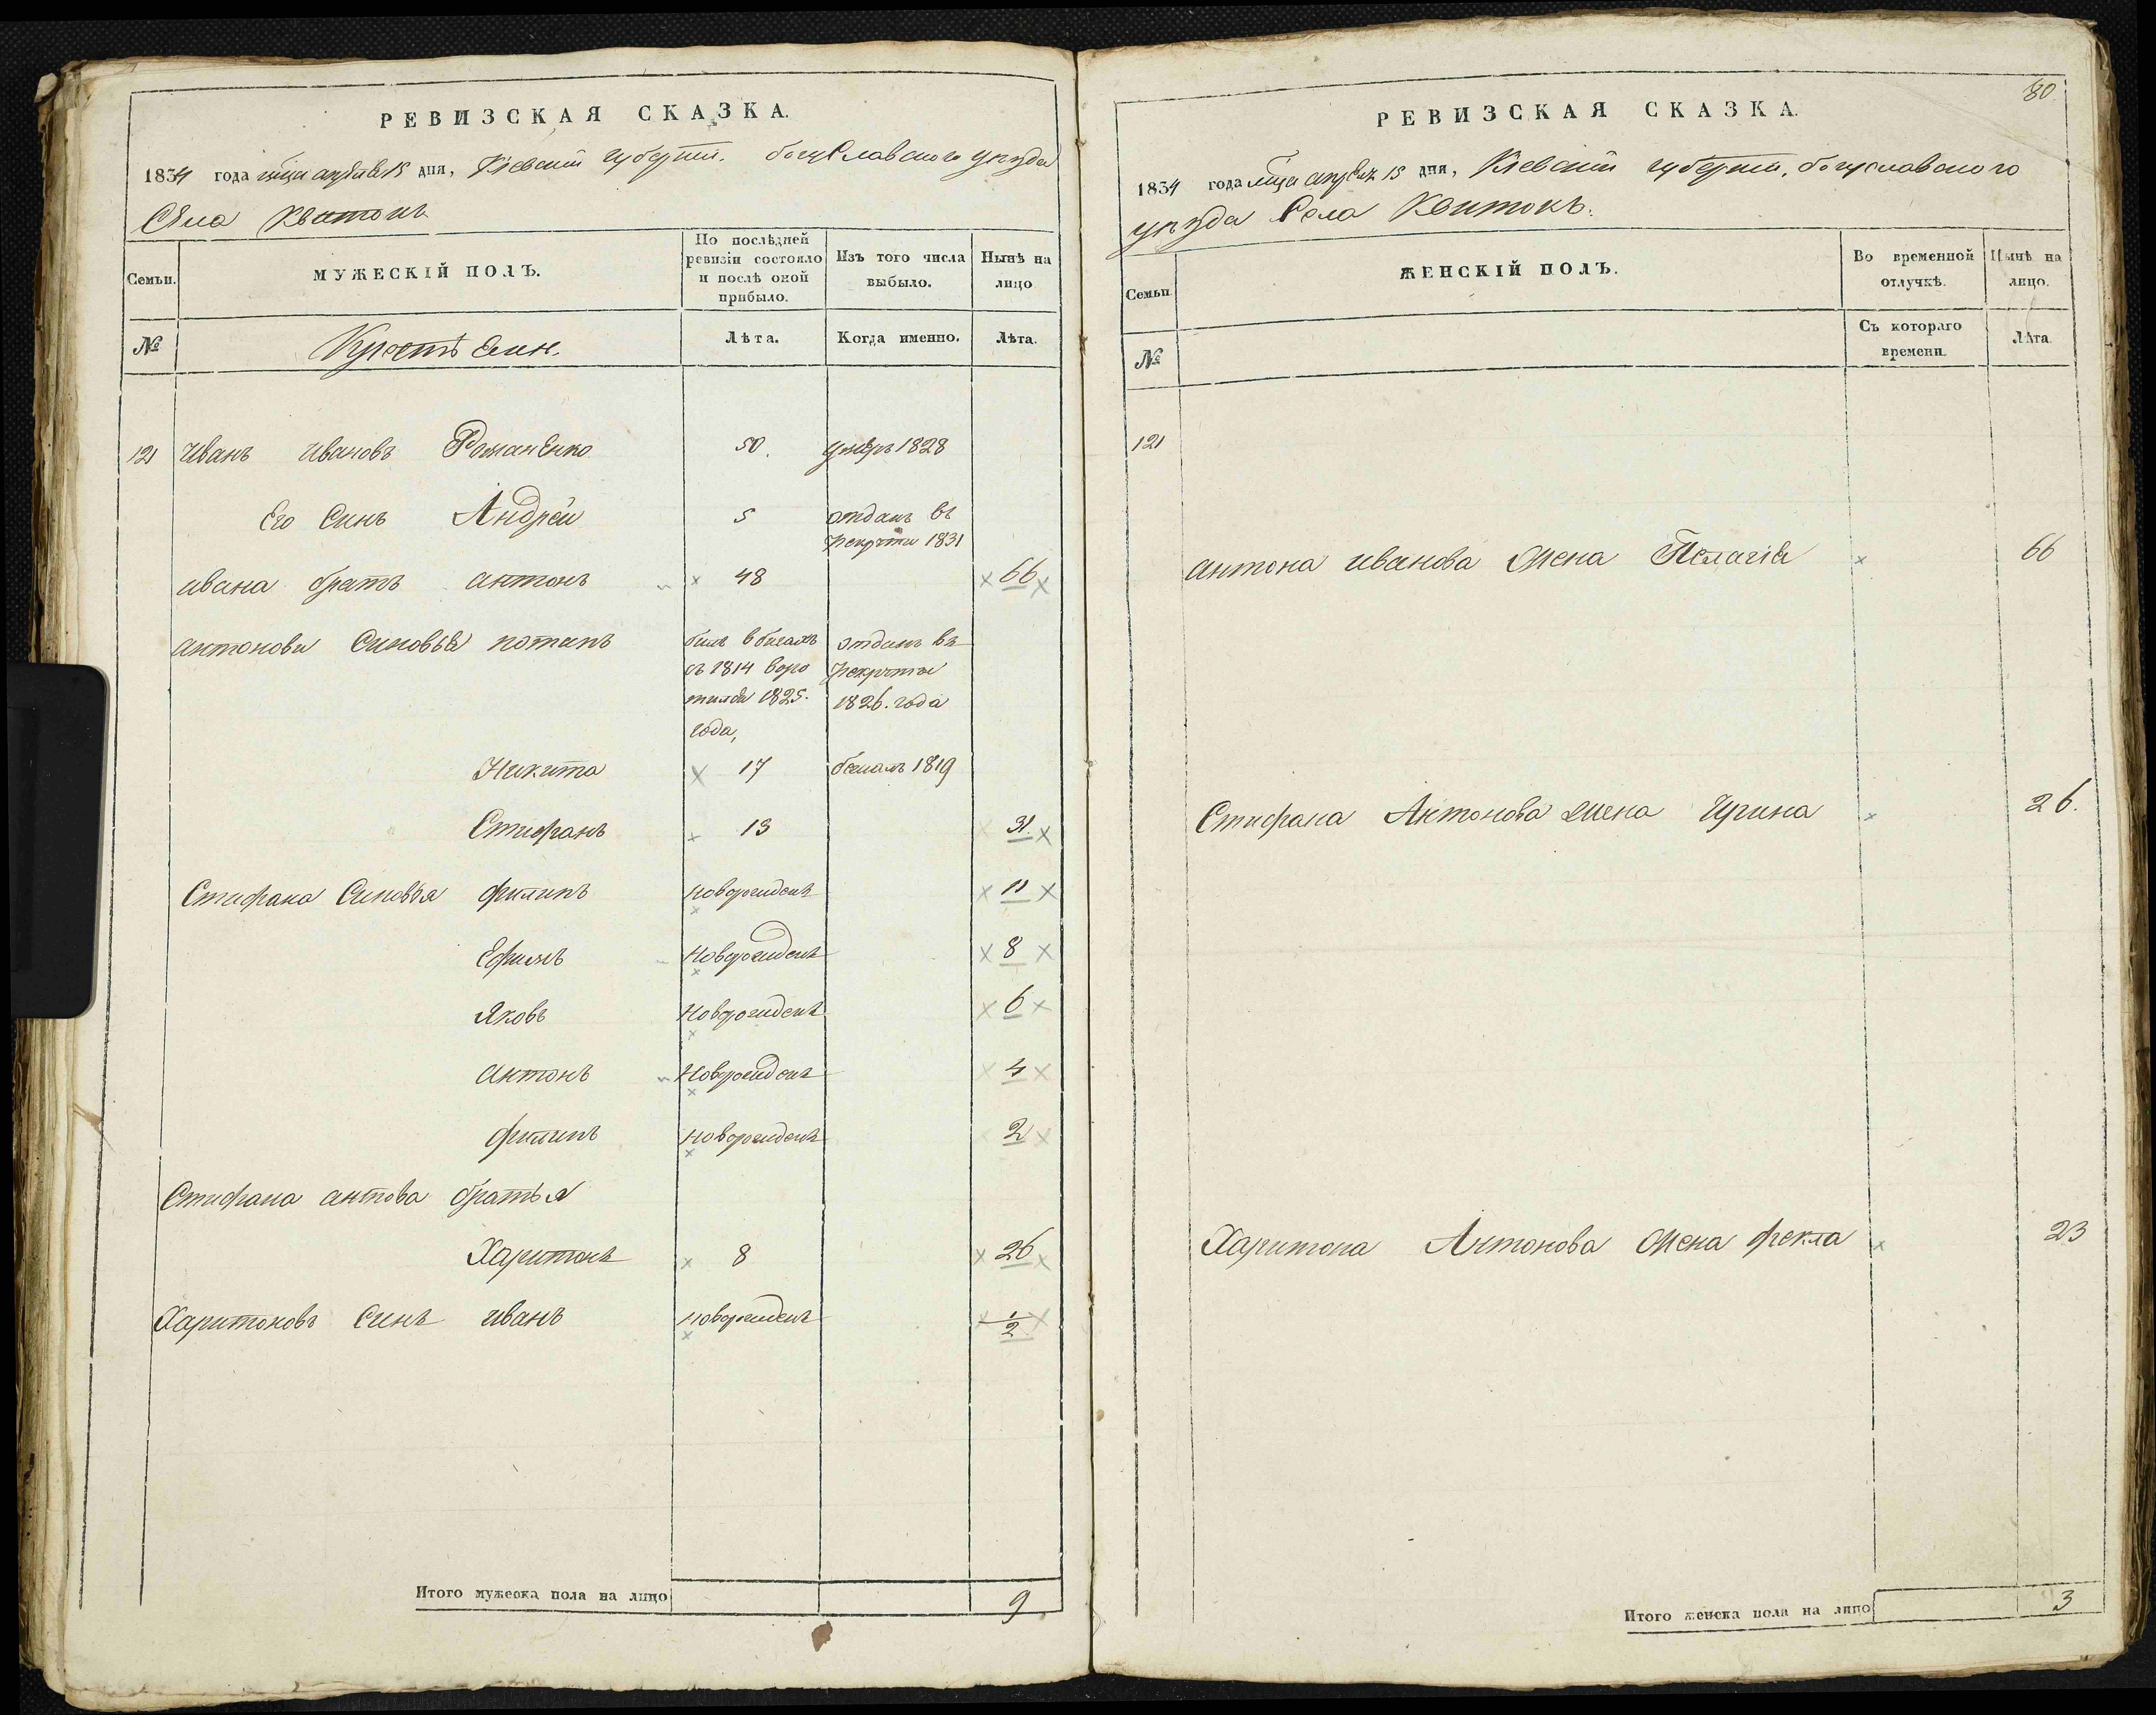 РЕВИЗСКАЯ СКАЗКА.
1834 года мѣсяца апреля 15 дня, Кіевской губерніи. богуславского уѣзда
Села Квитокъ
Семьи.
МУЖЕСКІЙ ПОЛЪ.
По послѣдней ревизіи состояло и послѣ оной прибыло.
Изъ того числа выбыло.
Нынѣ на лицо
№
Крестьяни.
Лѣта.
Когда именно.
Лѣта.
121 Иванъ Ивановъ Романенко 50. умеръ 1828
Его Синъ Андрей 5 отданъ въ
рекруты 1831
Ивана братъ антонъ 48 66
антонови Синовья потапъ билъ в бегахъ отданъ въ
съ 1814 воро рекруты
тился 1825. 1826. года
года,
Никита 17 бежалъ 1819
Стифанъ 13 31.
Стифана Синовья филипъ новорожденъ 11
Ефимъ новорожденъ 8
Яковъ новорожденъ 6
антонъ новорожденъ 4
филипъ новорожденъ 2
Стифана антова братья
Харитонъ 8 26
Харитоновъ Синъ иванъ новорожденъ 1/2
Итого мужеска пола на лицо 9
80
РЕВИЗСКАЯ СКАЗКА.
1834 года мѣсяца апреля 15 дня, Кіевской губерніи, богуславского
уѣзда Села Квитокъ.
Семьи
ЖЕНСКІЙ ПОЛЪ.
Во временной отлучкѣ.
Нынѣ на лицо.
№
Съ котораго времени.
Лѣта
121
антона иванова жена Пелагія 66
Стифана Антонова жена Ирина 26.
Харитона Антонова жена фекла 23
Итого женска пола на лицо 3